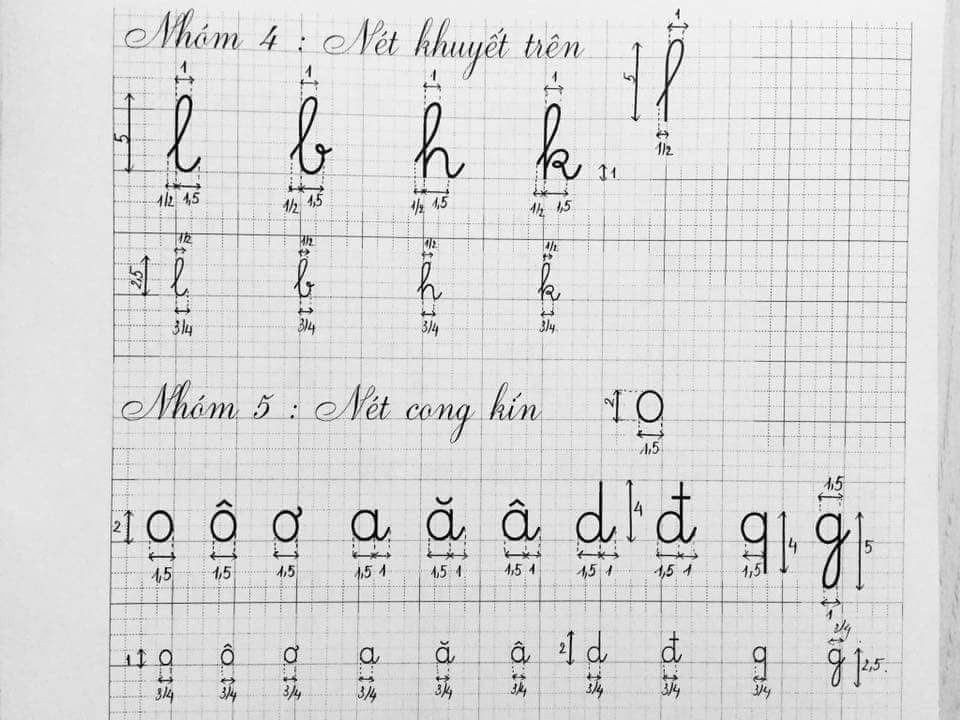 Nhóm 4 : Nét khuyết trên
1 1 1 1 1
5 l b h k 5 l
1/2 1,5 1/2 1,5 1/2 1,5 1/2 1,5 1 1/2
1/2 1/2 1/2 1/2
2,5 l b h k
3/4 3/4 3/4 3/4
Nhóm 5 : Nét cong kín 2 o
1,5
1,5
2 o ô ơ a ă â d 4 đ q 4 g 5
1,5 1,5 1,5 1,5 1 1,5 1 1,5 1 1,5 1 1,5 1 1,5
1
3/4
1 o ô ơ a ă â 2 d đ q g 2,5
3/4 3/4 3/4 3/4 3/4 3/4 3/4 3/4 3/4